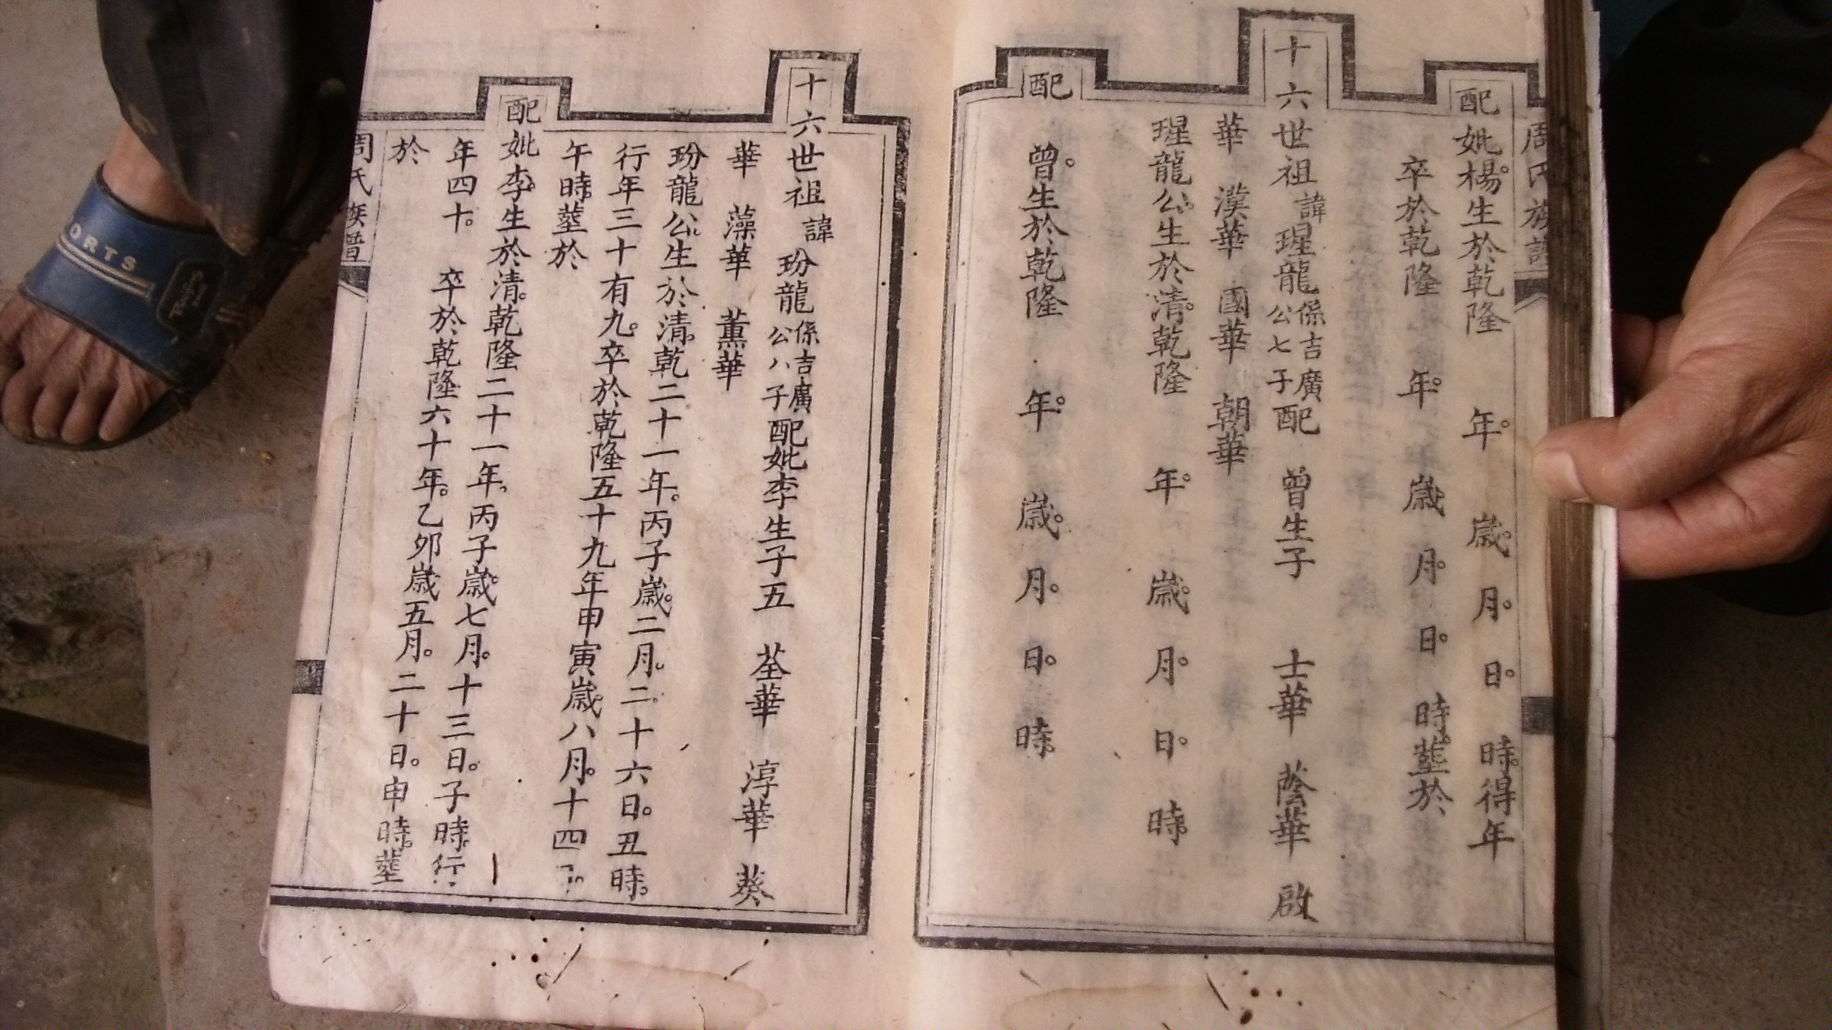 周氏族譜
配妣楊生於乾隆 年 歲 月 日 時得年
卒於乾隆 年 歲 月 日 時塟於
十六世祖諱瑆龍係吉廣公七子配 曾生子 士華 蔭華 啟
華 漢華 國華 朝華
瑆龍公生於清乾隆 年 歲 月 日 時
配 曾生於乾隆 年 歲 月 日 時
十六世祖諱玢龍係吉廣公八子配妣李生子五 荃華 淳華 葵
華 藻華 薰華
玢龍公生於清乾二十一年丙子歲二月二十六日丑時
行年三十有九卒於乾隆五十九年甲寅歲八月十四
午時塟於
配妣李生於清乾隆二十一年丙子歲七月十三日子時行
年四十 卒於乾隆六十年乙卯歲五月二十日申時塟
於
周氏族譜
SPORTS